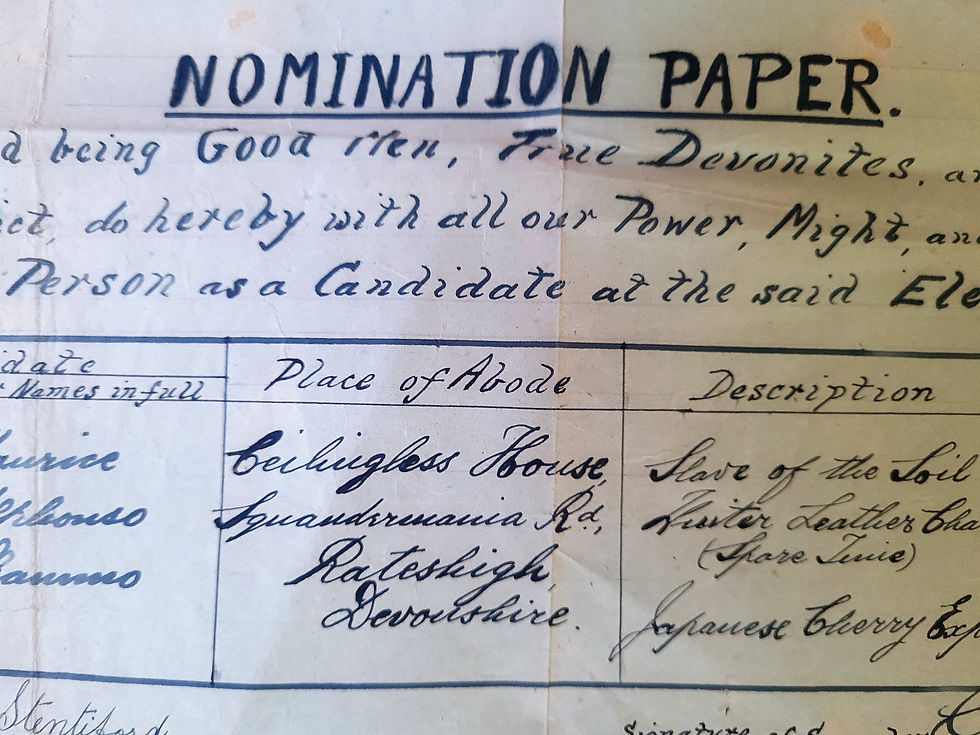 NOMINATION PAPER.
d being Good Men, True Devonites, an
ict, do hereby with all our Power, Might, and
Person as a Candidate at the said Ele
date
Names in full
Place of Abode
Description
aurice
Ceilingless House,
Slave of the Soil
lphonso
Squandermania Rd,
Leather Cha
(Spare Time)
Rateshigh,
Devonshire.
Japanese Cherry Exp
Stentiford
Signature of